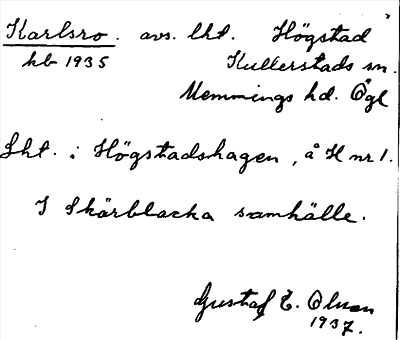 Karlsro. avs. lht. Högstad
hb 1935 Kullerstads sn.
Memmings hd. Ögl
Lht. i Högstadshagen, å H nr 1.
I Skärblacka samhälle.
Gustaf E. Olsson
1937.